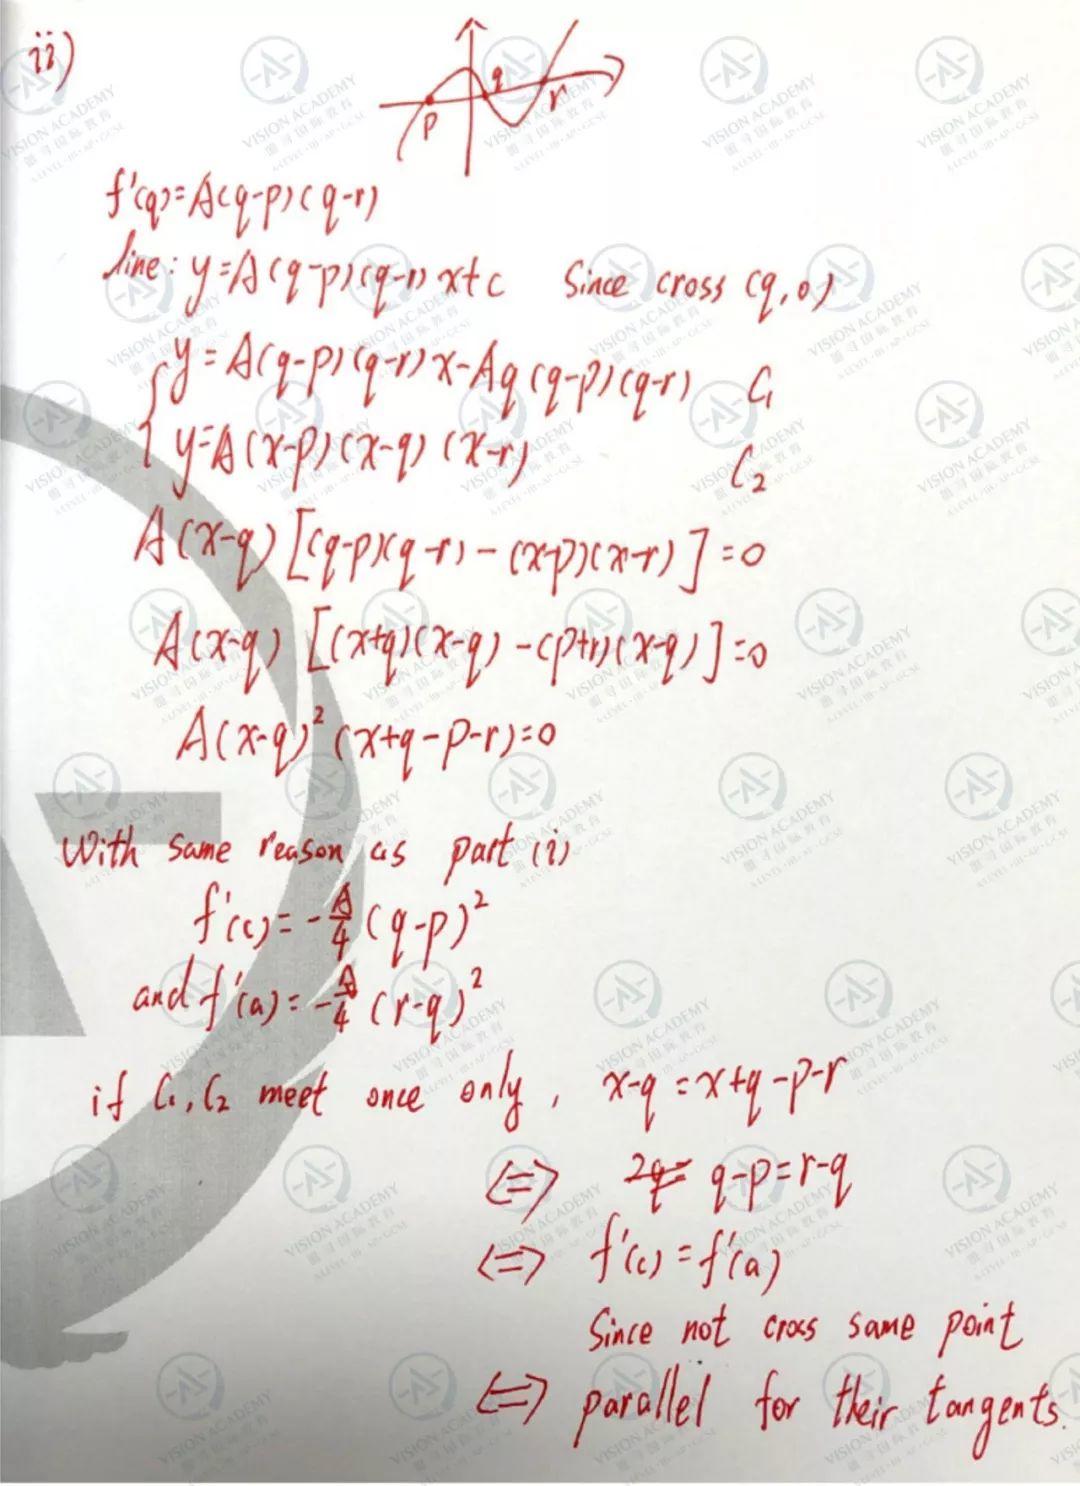 ii)
p q r
f'(q)=A(q-p)(q-r)
line: y=A(q-p)(q-r)x+c Since cross (q,0)
y=A(q-p)(q-r)x-Aq(q-p)(q-r) C₁
y=A(x-p)(x-q)(x-r) C₂
A(x-q)[(q-p)(q-r)-(x-p)(x-r)]=0
A(x-q)[(x+q)(x-q)-(p+r)(x-q)]=0
A(x-q)²(x+q-p-r)=0
With same reason as part (i)
f'(c)=-A/4(q-p)²
and f'(a)=-A/4(r-q)²
if C₁, C₂ meet once only, x-q=x+q-p-r
<=> q-p=r-q
<=> f'(c)=f'(a)
Since not cross same point
<=> parallel for their tangents.
VISION ACADEMY
ALEVEL·IB·AP·GCSE